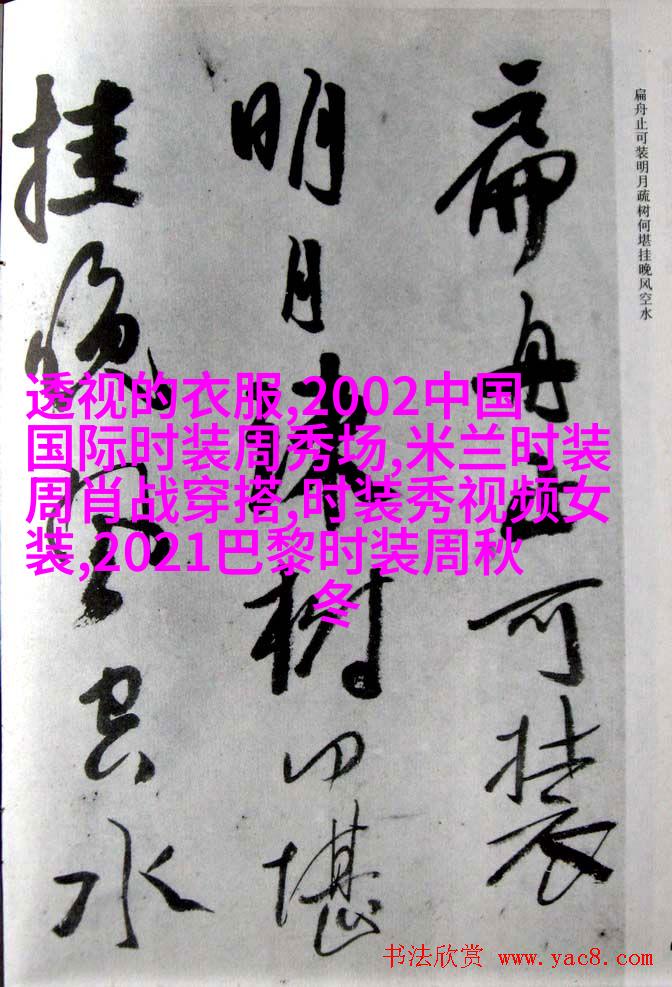 扁舟止可装明月疏树何堪挂晚风空水
扁舟止可装
明月疎樹何堪
挂晚風空水
透视的衣服,2002中国
国际时装周秀场,米兰时装
周肖战穿搭,时装秀视频女
装,2021巴黎时装周秋
冬
书法欣赏 www.yac8.com